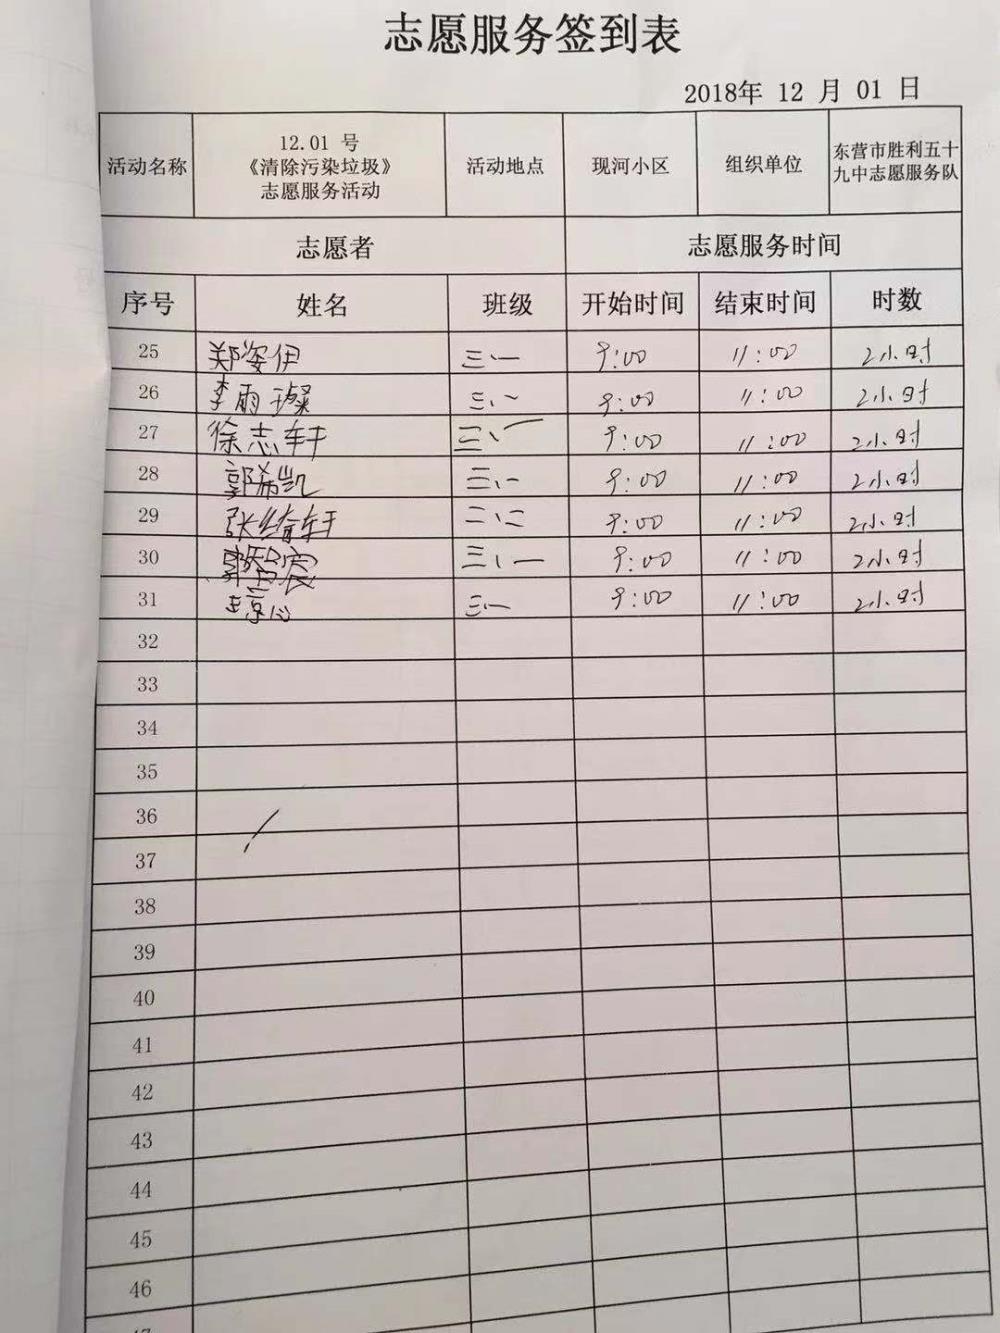 志愿服务签到表
2018年 12 月 01 日
活动名称 12.01 号《清除污染垃圾》志愿服务活动 活动地点 现河小区 组织单位 东营市胜利五十九中志愿服务队
志愿者 志愿服务时间
序号 姓名 班级 开始时间 结束时间 时数
25 郑姿伊 三、一 9:00 11:00 2小时
26 李雨璨 三、一 9:00 11:00 2小时
27 徐志轩 三、一 9:00 11:00 2小时
28 郭希凯 三、一 9:00 11:00 2小时
29 张 轩 二、二 9:00 11:00 2小时
30 郭 宸 三、一 9:00 11:00 2小时
31 王 三一 9:00 11:00 2小时
32
33
34
35
36
37
38
39
40
41
42
43
44
45
46
47